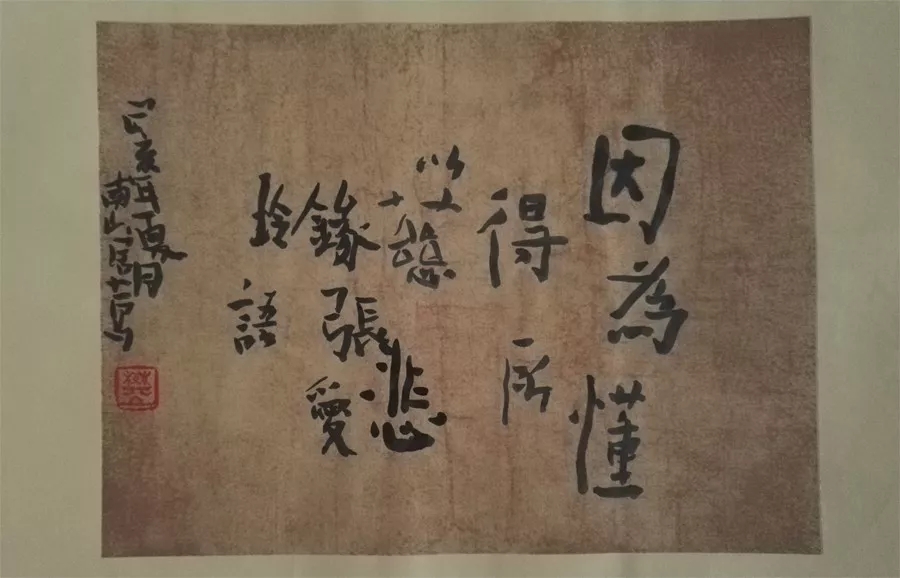 因為懂
得所
以慈悲
錄張愛
玲語
己亥年夏月
南山居士寫